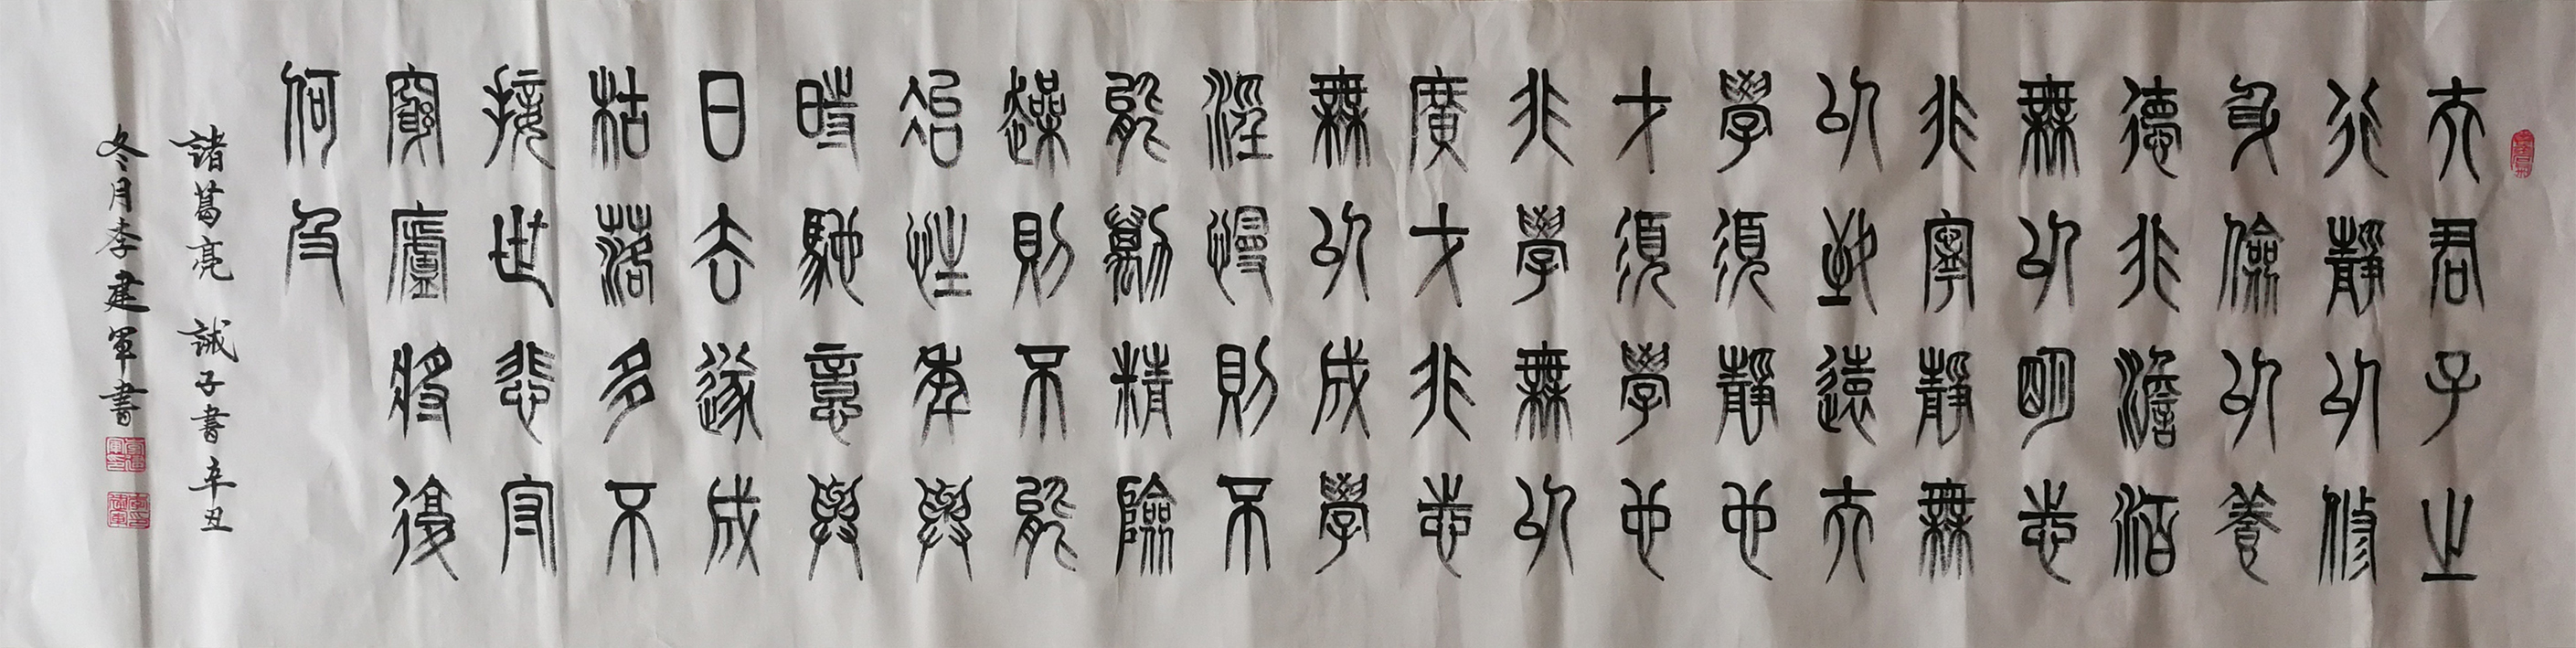 夫君子之
行靜以修
身儉以養
德非澹泊
無以明志
非寧靜無
以致遠夫
學須靜也
才須學也
非學無以
廣才非志
無以成學
淫慢則不
能勵精險
躁則不能
冶性年與
時馳意與
日去遂成
枯落多不
接世悲守
窮廬將復
何及
諸葛亮 誡子書 辛丑
冬月李建軍書